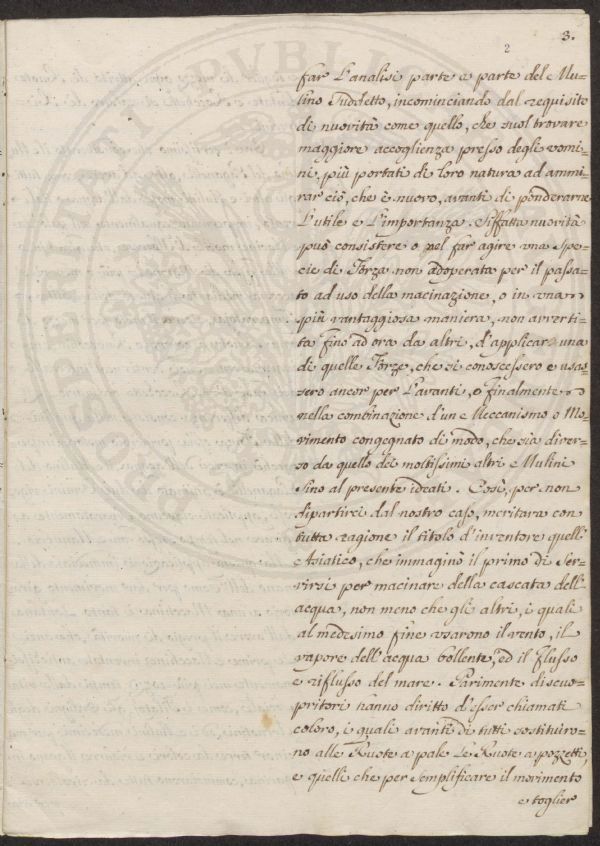 3.
2
far l'analisi parte a parte del Mu=
lino Suddetto, incominciando dal requisito
di nuovità come quello, che suol trovare
maggiore accoglienza presso degli vomi=
ni, più portati di loro natura ad ammi=
rar ciò, che è nuovo, avanti di ponderarne
l'utile e l'importanza. Siffatta nuovità
può consistere o nel far agire una Spe=
cie di Forza non adoperata per il passa=
to ad uso della macinazione, o in una
più vantaggiosa maniera, non avverti=
ta fino ad ora da altri, d'applicar una
di quelle Forze, che si conoscessero e usas=
sero ancor per l'avanti, o finalmente
nella combinazione d'un Meccanismo o Mo=
vimento congegnato di modo, che sia diver=
so da quello dei moltissimi altri Mulini
sino al presente ideati. Così, per non
dipartirci dal nostro caso, meritava con
tutta ragione il titolo d'inventore quell'
Asiatico, che immaginò il primo di Ser=
virsi per macinare della cascata dell'
acqua, non meno che gli altri, i quali
al medesimo fine usarono il vento, il
vapore dell'acqua bollente, ed il flusso
e riflusso del mare. Parimente discuo=
pritori hanno diritto d'esser chiamati
coloro, i quali avanti di tutti sostituiro=
no alle Ruote a pale le Ruote a pozzetti,
e quelli che per semplificare il movimento
e toglier
PROSPERITATI PVBLICAE